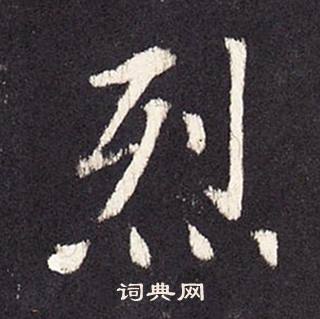 烈
词典网